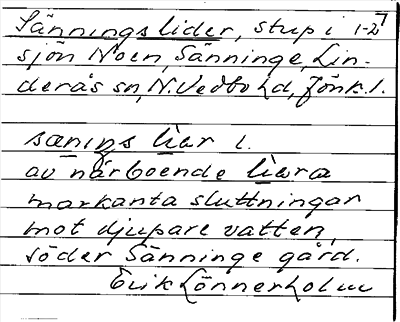 Sänningslider, stup i 1-25
sjön Noen, Sänninge, Lin-
derås sn, N. Vedbo hd, Jönk. l.
sænings lìar l.
av närboende lìara
markanta sluttningar
mot djupare vatten,
söder Sänninge gård.
Erik Lönnerholm